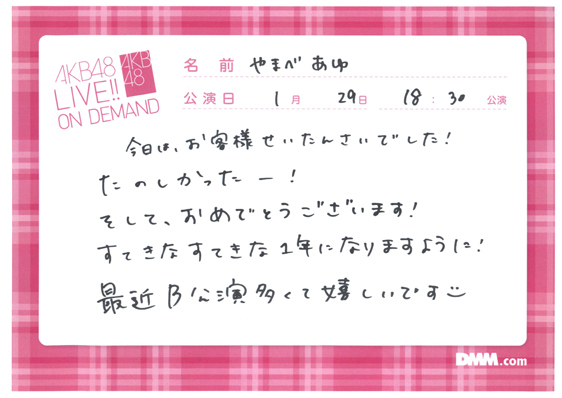 AKB48
LIVE!!
ON DEMAND
AKB
48
名前 やまべ あゆ
公演日 1月 29日 18:30 公演
今日は、お客様せいたんさいでした!
たのしかったー!
そして、おめでとうございます!
すてきなすてきな1年になりますように!
最近B公演多くて嬉しいです
DMM.com